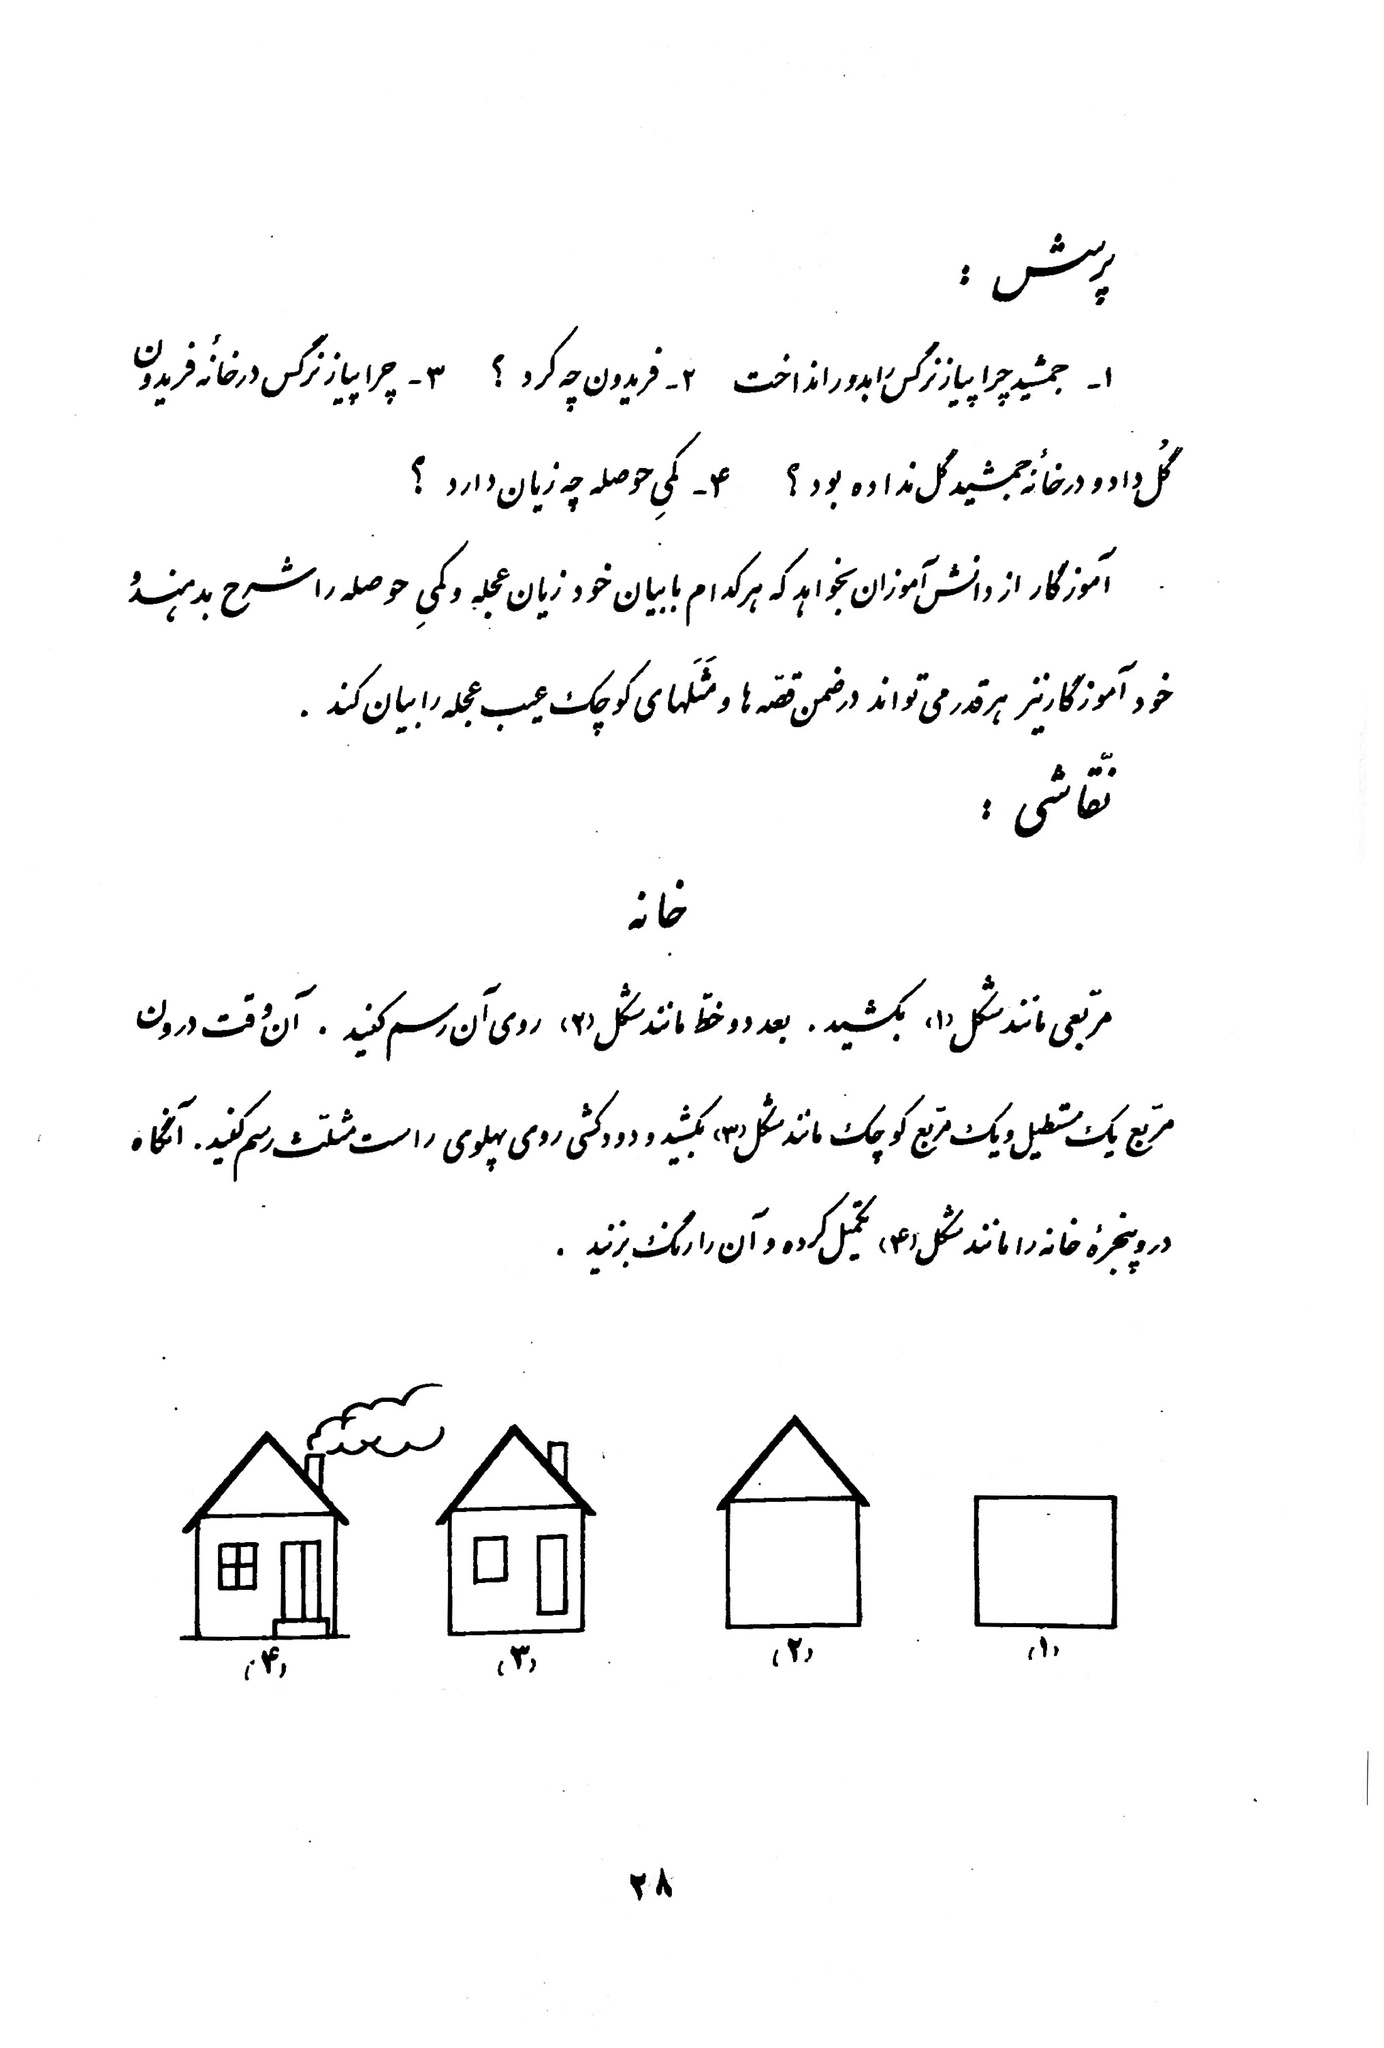 پرسش :
۱ـ جمشید چرا پیاز نرگس را بدور انداخت ۲ـ فریدون چه کرد ؟ ۳ـ چرا پیاز نرگس در خانهٔ فریدون
گُل داد و در خانهٔ جمشید گل نداده بود ؟ ۴ـ کمیِ حوصله چه زیان دارد ؟
آموزگار از دانش‌آموزان بخواهد که هر کدام با بیان خود زیان عجله و کمیِ حوصله را شرح بدهند و
خود آموزگار نیز هر قدر می تواند در ضمن قصّه ها و مَثَلهای کوچک عیب عجله را بیان کند .
نقّاشی :
خانه
مربّعی مانند شکل (۱) بکشید . بعد دو خطّ مانند شکل (۲) روی آن رسم کنید . آن وقت درون
مربّع یک مستطیل و یک مربّع کوچک مانند شکل (۳) بکشید و دودکشی روی پهلوی راست مثلّث رسم کنید . آنگاه
در و پنجرهٔ خانه را مانند شکل (۴) تکمیل کرده و آن را رنگ بزنید .
(۱) (۲) (۳) (۴)
۲۸